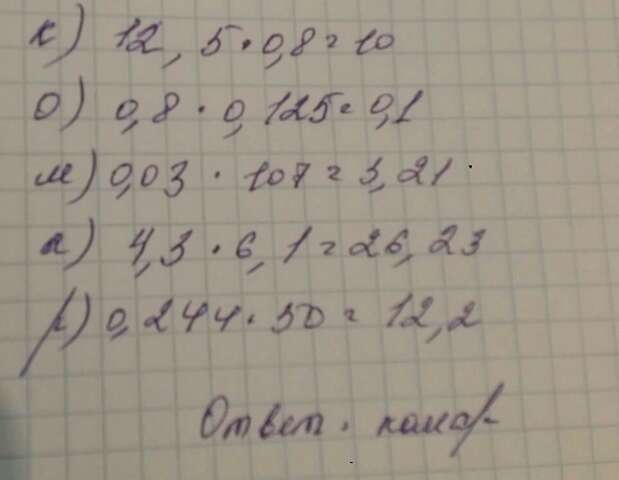 к) 12,5·0,8=10
о) 0,8·0,125=0,1
м) 0,03·107=3,21
а) 4,3·6,1=26,23
р) 0,244·50=12,2
Ответ. комар